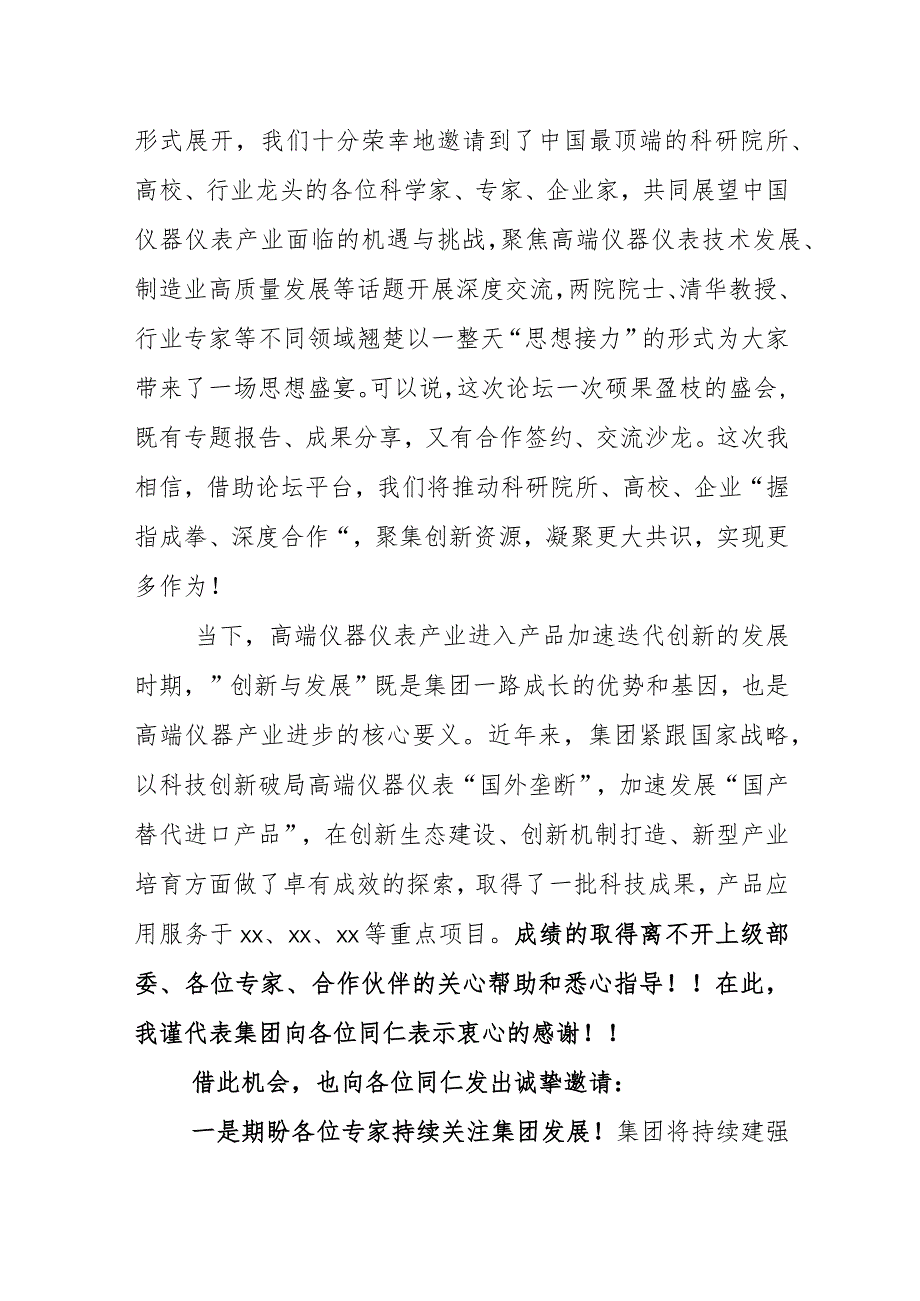 形式展开，我们十分荣幸地邀请到了中国最顶端的科研院所、
高校、行业龙头的各位科学家、专家、企业家，共同展望中国
仪器仪表产业面临的机遇与挑战，聚焦高端仪器仪表技术发展、
制造业高质量发展等话题开展深度交流，两院院士、清华教授、
行业专家等不同领域翘楚以一整天“思想接力”的形式为大家
带来了一场思想盛宴。可以说，这次论坛一次硕果盈枝的盛会，
既有专题报告、成果分享，又有合作签约、交流沙龙。这次我
相信，借助论坛平台，我们将推动科研院所、高校、企业“握
指成拳、深度合作“，聚集创新资源，凝聚更大共识，实现更
多作为！
当下，高端仪器仪表产业进入产品加速迭代创新的发展
时期，”创新与发展”既是集团一路成长的优势和基因，也是
高端仪器产业进步的核心要义。近年来，集团紧跟国家战略，
以科技创新破局高端仪器仪表“国外垄断”，加速发展“国产
替代进口产品”，在创新生态建设、创新机制打造、新型产业
培育方面做了卓有成效的探索，取得了一批科技成果，产品应
用服务于 xx、xx、xx 等重点项目。成绩的取得离不开上级部
委、各位专家、合作伙伴的关心帮助和悉心指导！！在此，
我谨代表集团向各位同仁表示衷心的感谢！！
借此机会，也向各位同仁发出诚挚邀请：
一是期盼各位专家持续关注集团发展！集团将持续建强